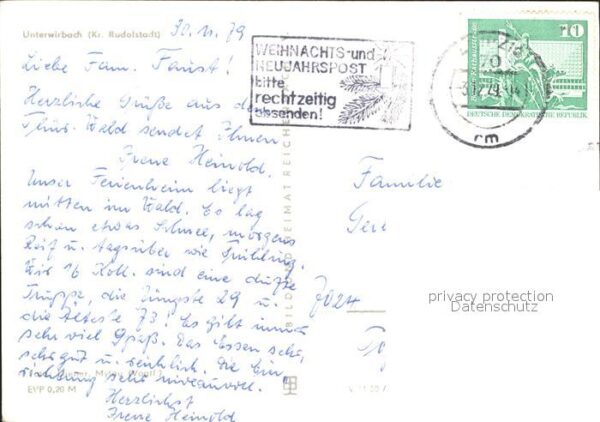 Unterwirbach (Kr. Rudolstadt)
30.11.79
Liebe Fam. Faust!
Herzliche Grüße aus dem
Thür. Wald sendet Ihnen
Irene Heinold.
Unser Ferienheim liegt
mitten im Wald. Es lag
schon etwas Schnee, morgens
Reif u. tagsüber wie Frühling.
Wir 16 Koll. sind eine dufte
Truppe, die Jüngste 29 u.
die Älteste 73! Es gibt immer
sehr viel Spaß. Das Essen sehr,
sehr gut u. reichlich. Die Ein-
richtung sehr niveauvoll.
Herzlichst
Irene Heinold
EVP 0,20 M
BILD UND HEIMAT REICHENBACH
WEIHNACHTS-und
NEUJAHRSPOST
bitte
rechtzeitig
absenden!
70
12.79
rm
10
DEUTSCHE DEMOKRATISCHE REPUBLIK
Familie
7024
privacy protection
Datenschutz